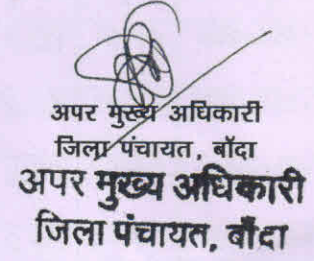 अपर मुख्य अधिकारी
जिला पंचायत, बॉदा
अपर मुख्य अधिकारी
जिला पंचायत, बाँदा